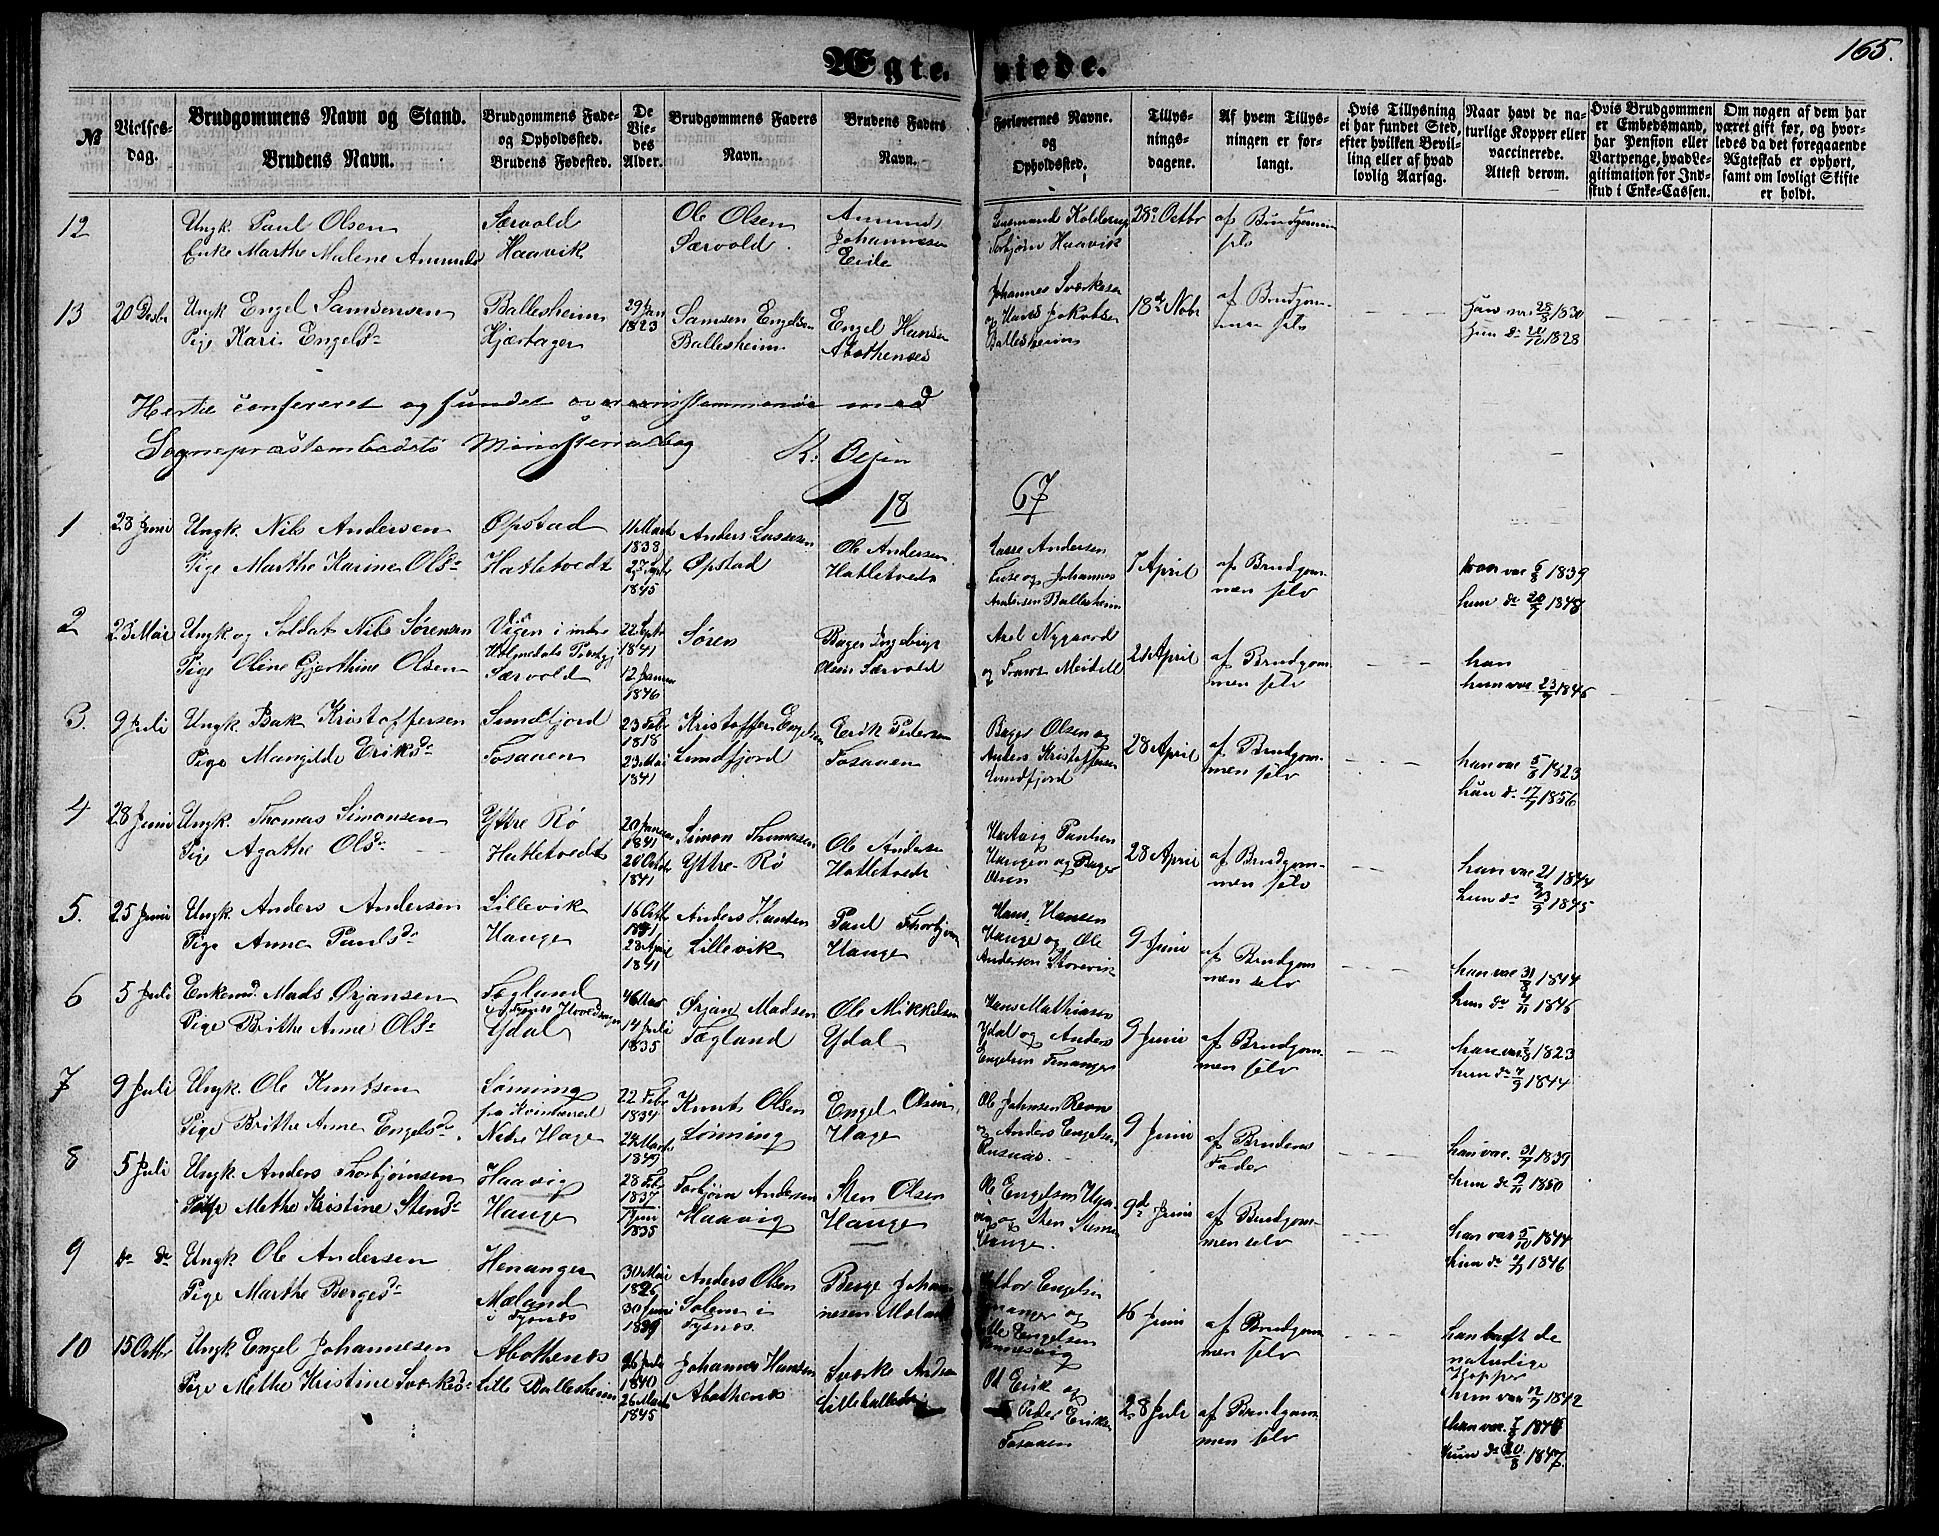 165.
Ægte- viede.
№
Vielses-
dag.
Brudgommens Navn og Stand.
Brudens Navn.
Brudgommens Føde-
og Opholdssted.
Brudens Fødested.
De
Vie-
des
Alder.
Brudgommens Faders
Navn.
Brudens Faders
Navn.
Forlovernes Navne.
og
Opholdssted.
Tillys-
nings-
dagene.
Af hvem Tillys-
ningen er for-
langt.
Hvis Tillysning
ei har fundet Sted,
efter hvilken Bevil-
ling eller af hvad
lovlig Aarsag.
Naar havt de na-
turlige Kopper eller
vaccinerede.
Attest derom.
Hvis Brudgommen
er Embedsmand,
har Pension eller
Vartpenge, hvad Le-
gitimation for Ind-
skud i Enke-Cassen.
Om nogen af dem har
været gift før, og hvor-
ledes da det foregaaende
Ægteskab er ophørt,
samt om lovligt Skifte
er holdt.
12
Ungk. Paul Olsen
Enke Marthe Malene Amunds
Særvold
Haavik
Ole Olsen
Særvold
Amund
Johannesen
Torbjørn Haavik
28 Octbr
af Brudgommen
selv
13
20 Decbr
Ungk Engel Samsonsen
Pige Kari Engelsd
Ballesheim
Hjertager
29 Jan
1823
Samson Engelsen
Ballesheim
Engel Hansen
Abothenes
Johannes Sværkesen
og Hans Jakobsen
Ballesheim
18 Nobr
af Brudgom-
men selv
han var 28/8 1830
hun do 1828
Hertil confereret og fundet overensstemmende med
Sognepræstembedets Ministerialbog
18 67
1
28 Juni
Ungk. Nils Andersen
Pige Marthe Karine Olsd
Opstad
Hatletvedt
11 Marts
1838
27 Septr
1845
Anders Lassesen
Opstad
Ole Andersen
Hatletvedt
Lasse Andersen
Johannes
Andersen Ballesheim
7 April
af Brudgom-
men selv
han var 1839
hun do 1848
2
23 Mai
Ungk og Soldat Nils Sørensen
Pige Oline Gjerthine Olsen
Vigen i indre
Holmedals Præstgj
Særvold
22 Septr
1841
12 Januar
1846
Søren
Olsen Særvold
Axel Nygaard
og Frants Meidell
21 April
af Brudgom-
men selv
han
hun var 23/9 1846
3.
9 Juli
Ungk. Bak Kristoffersen
Pige Mangilde Eriksd
Sundfjord
Fosaaen
23 Febr
1818
23 Mai
1841
Kristoffer Engelsen
Sundfjord
Erik Pedersen
Fosaaen
Bager Olsen og
Anders Kristoffersen
Sundfjord
28 April
af Brudgom-
men selv
han var 5/8 1823
hun do 17/9 1856
4
28 Juni
Ungk. Thomas Simonsen
Pige Agathe Olsd
Yttre Rø
Hatletvedt
20 Januar
1841
20 Octbr
1841
Simon Thomassen
Yttre-Rø
Ole Andersen
Hatletvedt
Hartvig Paulsen
Haugen og Bager
Olsen
28 April
af Brudgom-
men selv
han var 1844
hun do 1845
5.
25 Juni
Ungk. Anders Andersen
Pige Anne Paulsd
Lillevik
Hauge
16 Octbr
1841
28 April
1841
Anders Hansen
Lillevik
Paul Thorbjørnsen
Hauge
Hans Hansen
Hauge og Ole
Andersen Storevik
9 Juni
af Brudgom
men selv
han var 1844
hun do 1846
6
5 Juli
Enkemd. Mads Ørjansen
Pige Brithe Anne Olsd
Fægland
Ydal
46 Aar
14 Juli
1835
Ørjan Madsen
Fægland
Ole Mikkelsen
Ydal
Hans Mathiasen
Ydal og Anders
Engelsen Finanger
9 Juni
af Brudgom-
men selv
han var 1823
hun do 1844
7
9 Juli
Ungk. Ole Knutsen
Pige Brithe Anne Engelsd
Lønning
fra Kvinherred
Nedre Hage
22 Febr
1834
24 Marts
1849
Knut Olsen
Lønning
Engel Olsen
Hage
Ole Johnsen Revne
og Anders Engelsen
Rusnæs.
9 Juni
af Brudens
Fader
han var 1839
hun do 1850
8
5 Juli
Ungk. Anders Thorbjørnsen
Pige Methe Kristine Stensd
Haavig
Hauge
28 Febr
1837
1835
Torbjørn Andersen
Haavig
Sten Olsen
Hauge
Ole Engelsen
og Sten
Hauge.
9 Juni
af Brudgom-
men selv
han var 5/10 1844
hun do 1846
9
do do
Ungk Ole Andersen
Pige Marthe Bergesd
Henanger
Mæland
i Tysnes
30 Mai
1826
30 Juni
1839
Anders Olsen
Solem i
Tysnes.
Berge Johan-
nesen Mæland
Haldor Engelsen
og
Ole Engelsen
16 Juni
af Brudgom
men selv
han havt de
naturlige
Kopper
hun var 1842
10
15 Octbr
Ungk Engel Johannesen
Pige Methe Kristine Sværkesd
Abothenes
Lille Ballesheim
26 Juli
1840
26 Marts
1845
Johannes Hansen
Abothenes
Sværke Andersen
Lilleballesheim
Ole Erik og
Peder Eriksen
Fosaaen
28 Juli
af Brudgom-
men selv
han var 1840
hun do 1847.